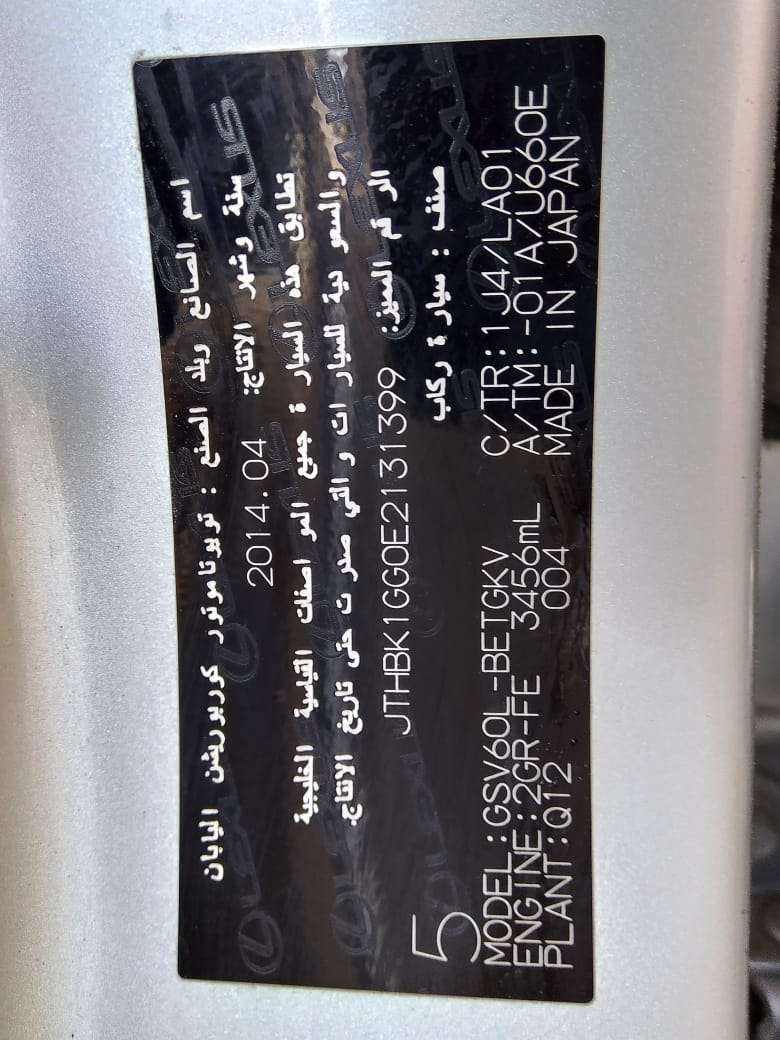 اسم الصانع وبلد الصنع : تويوتا موتور كوربوريشن اليابان
سنة وشهر الانتاج: 2014.04
تطابق هذه السيارة جميع المواصفات القياسية الخليجية
والسعودية للسيارات والتي صدرت حتى تاريخ الانتاج.
الرقم المميز: JTHBK1GG0E2131399
صنف : سيارة ركاب
5
MODEL:GSV60L-BETGKV C/TR:1J4/LA01
ENGINE:2GR-FE 3456mL A/TM:-01A/U660E
PLANT:Q12 004 MADE IN JAPAN
LEXUS